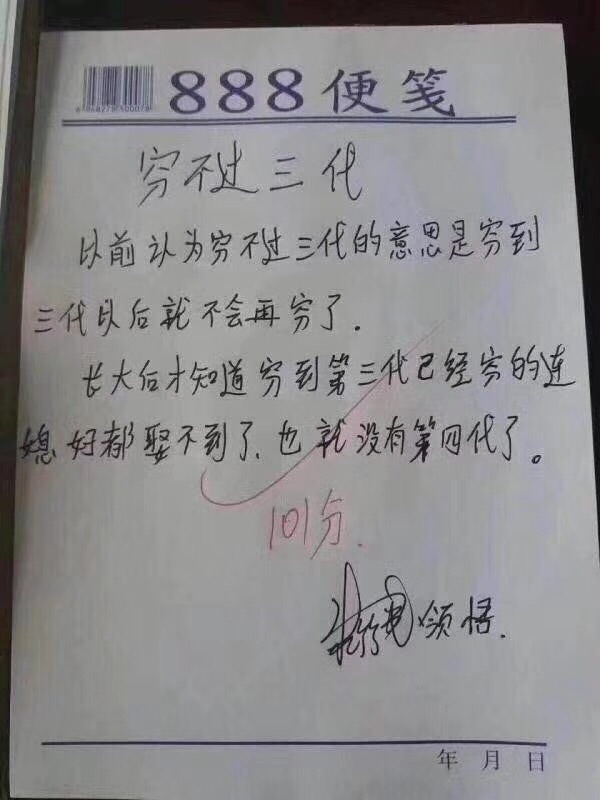 888便笺
穷不过三代
以前认为穷不过三代的意思是穷到
三代以后就不会再穷了.
长大后才知道穷到第三代已经穷的连
媳妇都娶不到了、也就没有第四代了。
101分.
领悟.
年 月 日